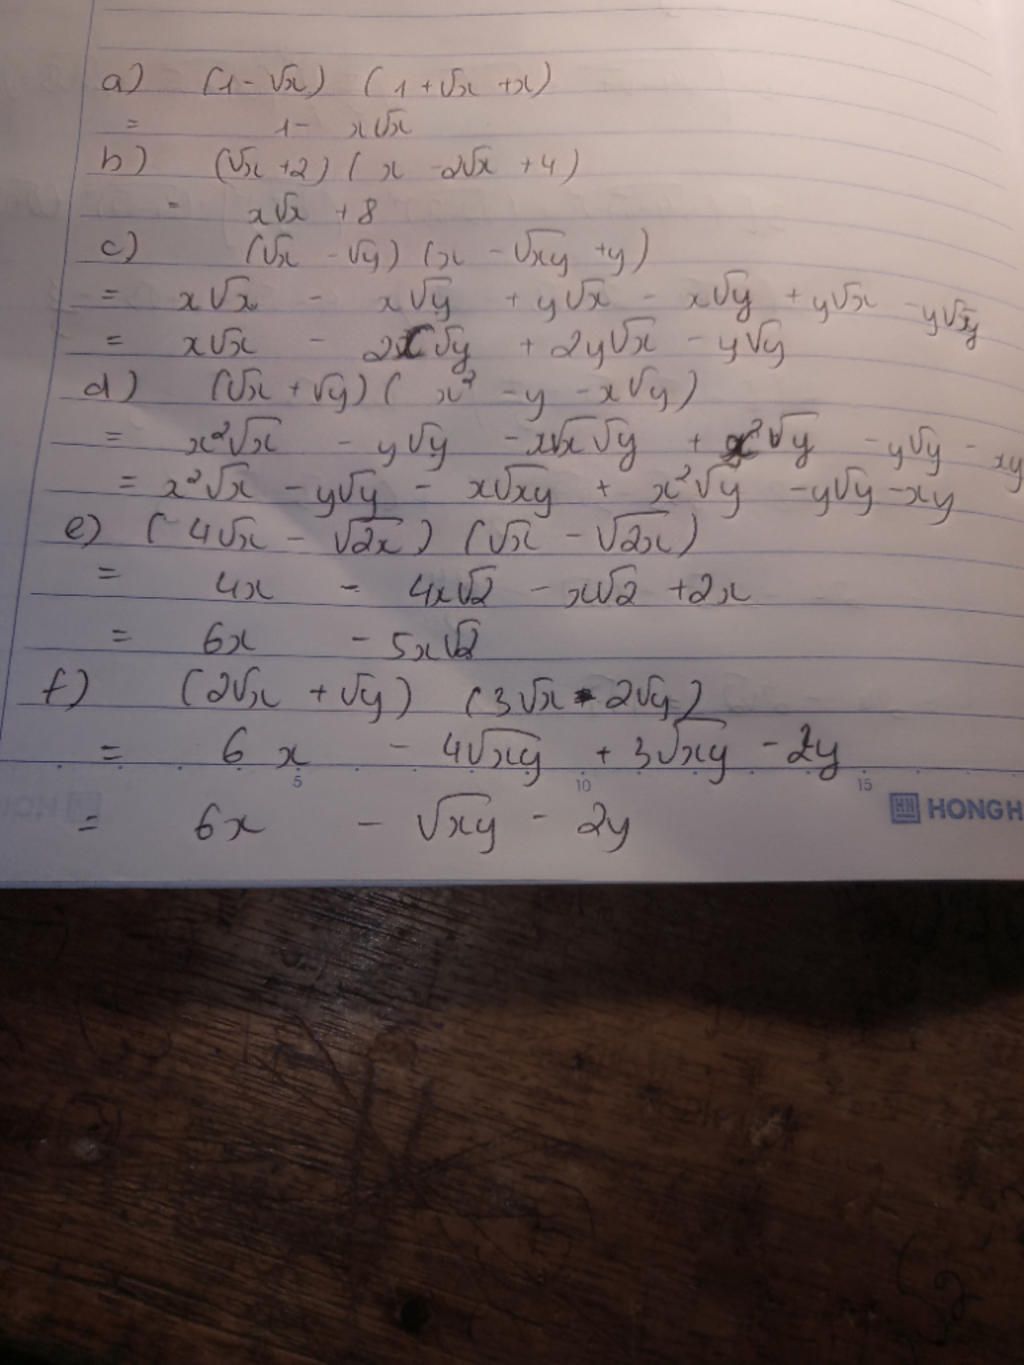 a) (1 - √x) (1 + √x + x)
= 1 - x√x
b) (√x + 2) ( x - 2√x + 4)
= x√x + 8
c) (√x - √y) (x - √xy + y)
= x√x - x√y + y√x - x√y + y√x - y√y
= x√x - 2x√y + 2y√x - y√y
d) (√x + √y) ( x² - y - x√y)
= x²√x - y√y - x√x√y + x²√y - y√y - xy
= x²√x - y√y - x√xy + x²√y - y√y - xy
e) ( 4√x - √2x ) (√x - √2x)
= 4x - 4x√2 - x√2 + 2x
= 6x - 5x√2
f) (2√x + √y) (3√x - 2√y)
= 6x - 4√xy + 3√xy - 2y
5 10 15
HONG H
= 6x - √xy - 2y